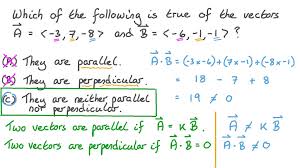 Which of the following is true of the vectors
A⃗ = < -3, 7, -8 > and B⃗ = < -6, -1, -1 > ?
(A) They are parallel.
A⃗ · B⃗ = (-3×-6) + (7×-1) + (-8×-1)
(B) They are perpendicular.
= 18 - 7 + 8
(C) They are neither parallel
not perpendicular.
= 19 ≠ 0
Two vectors are parallel if A⃗ = K B⃗.
A⃗ ≠ K B⃗
Two vectors are perpendicular if A⃗·B⃗ = 0
A⃗·B⃗ ≠ 0